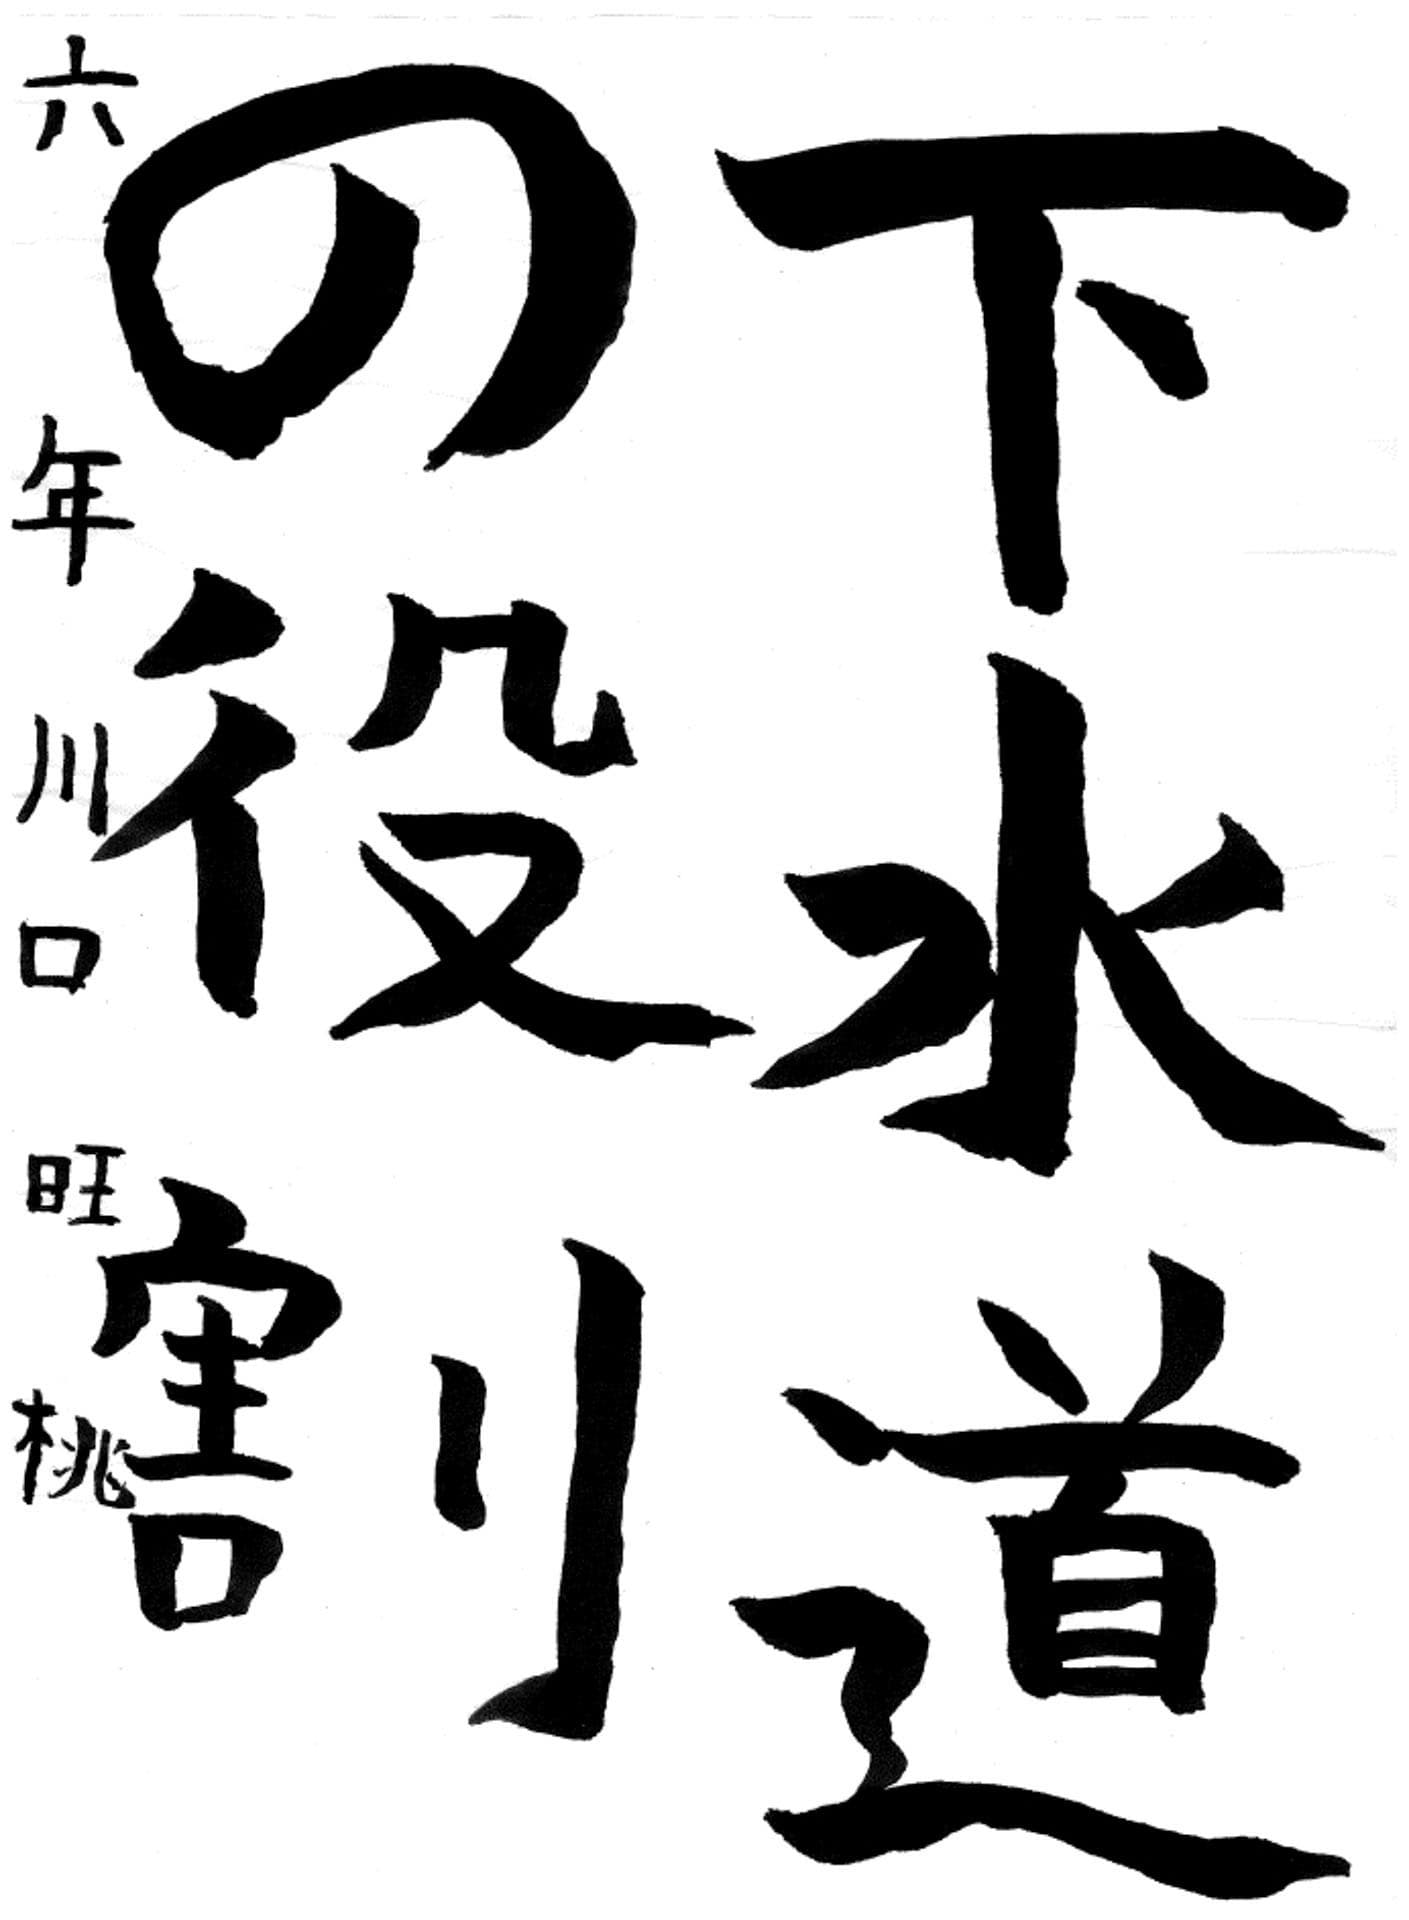 下水道
の役割
六年 川口 旺桃